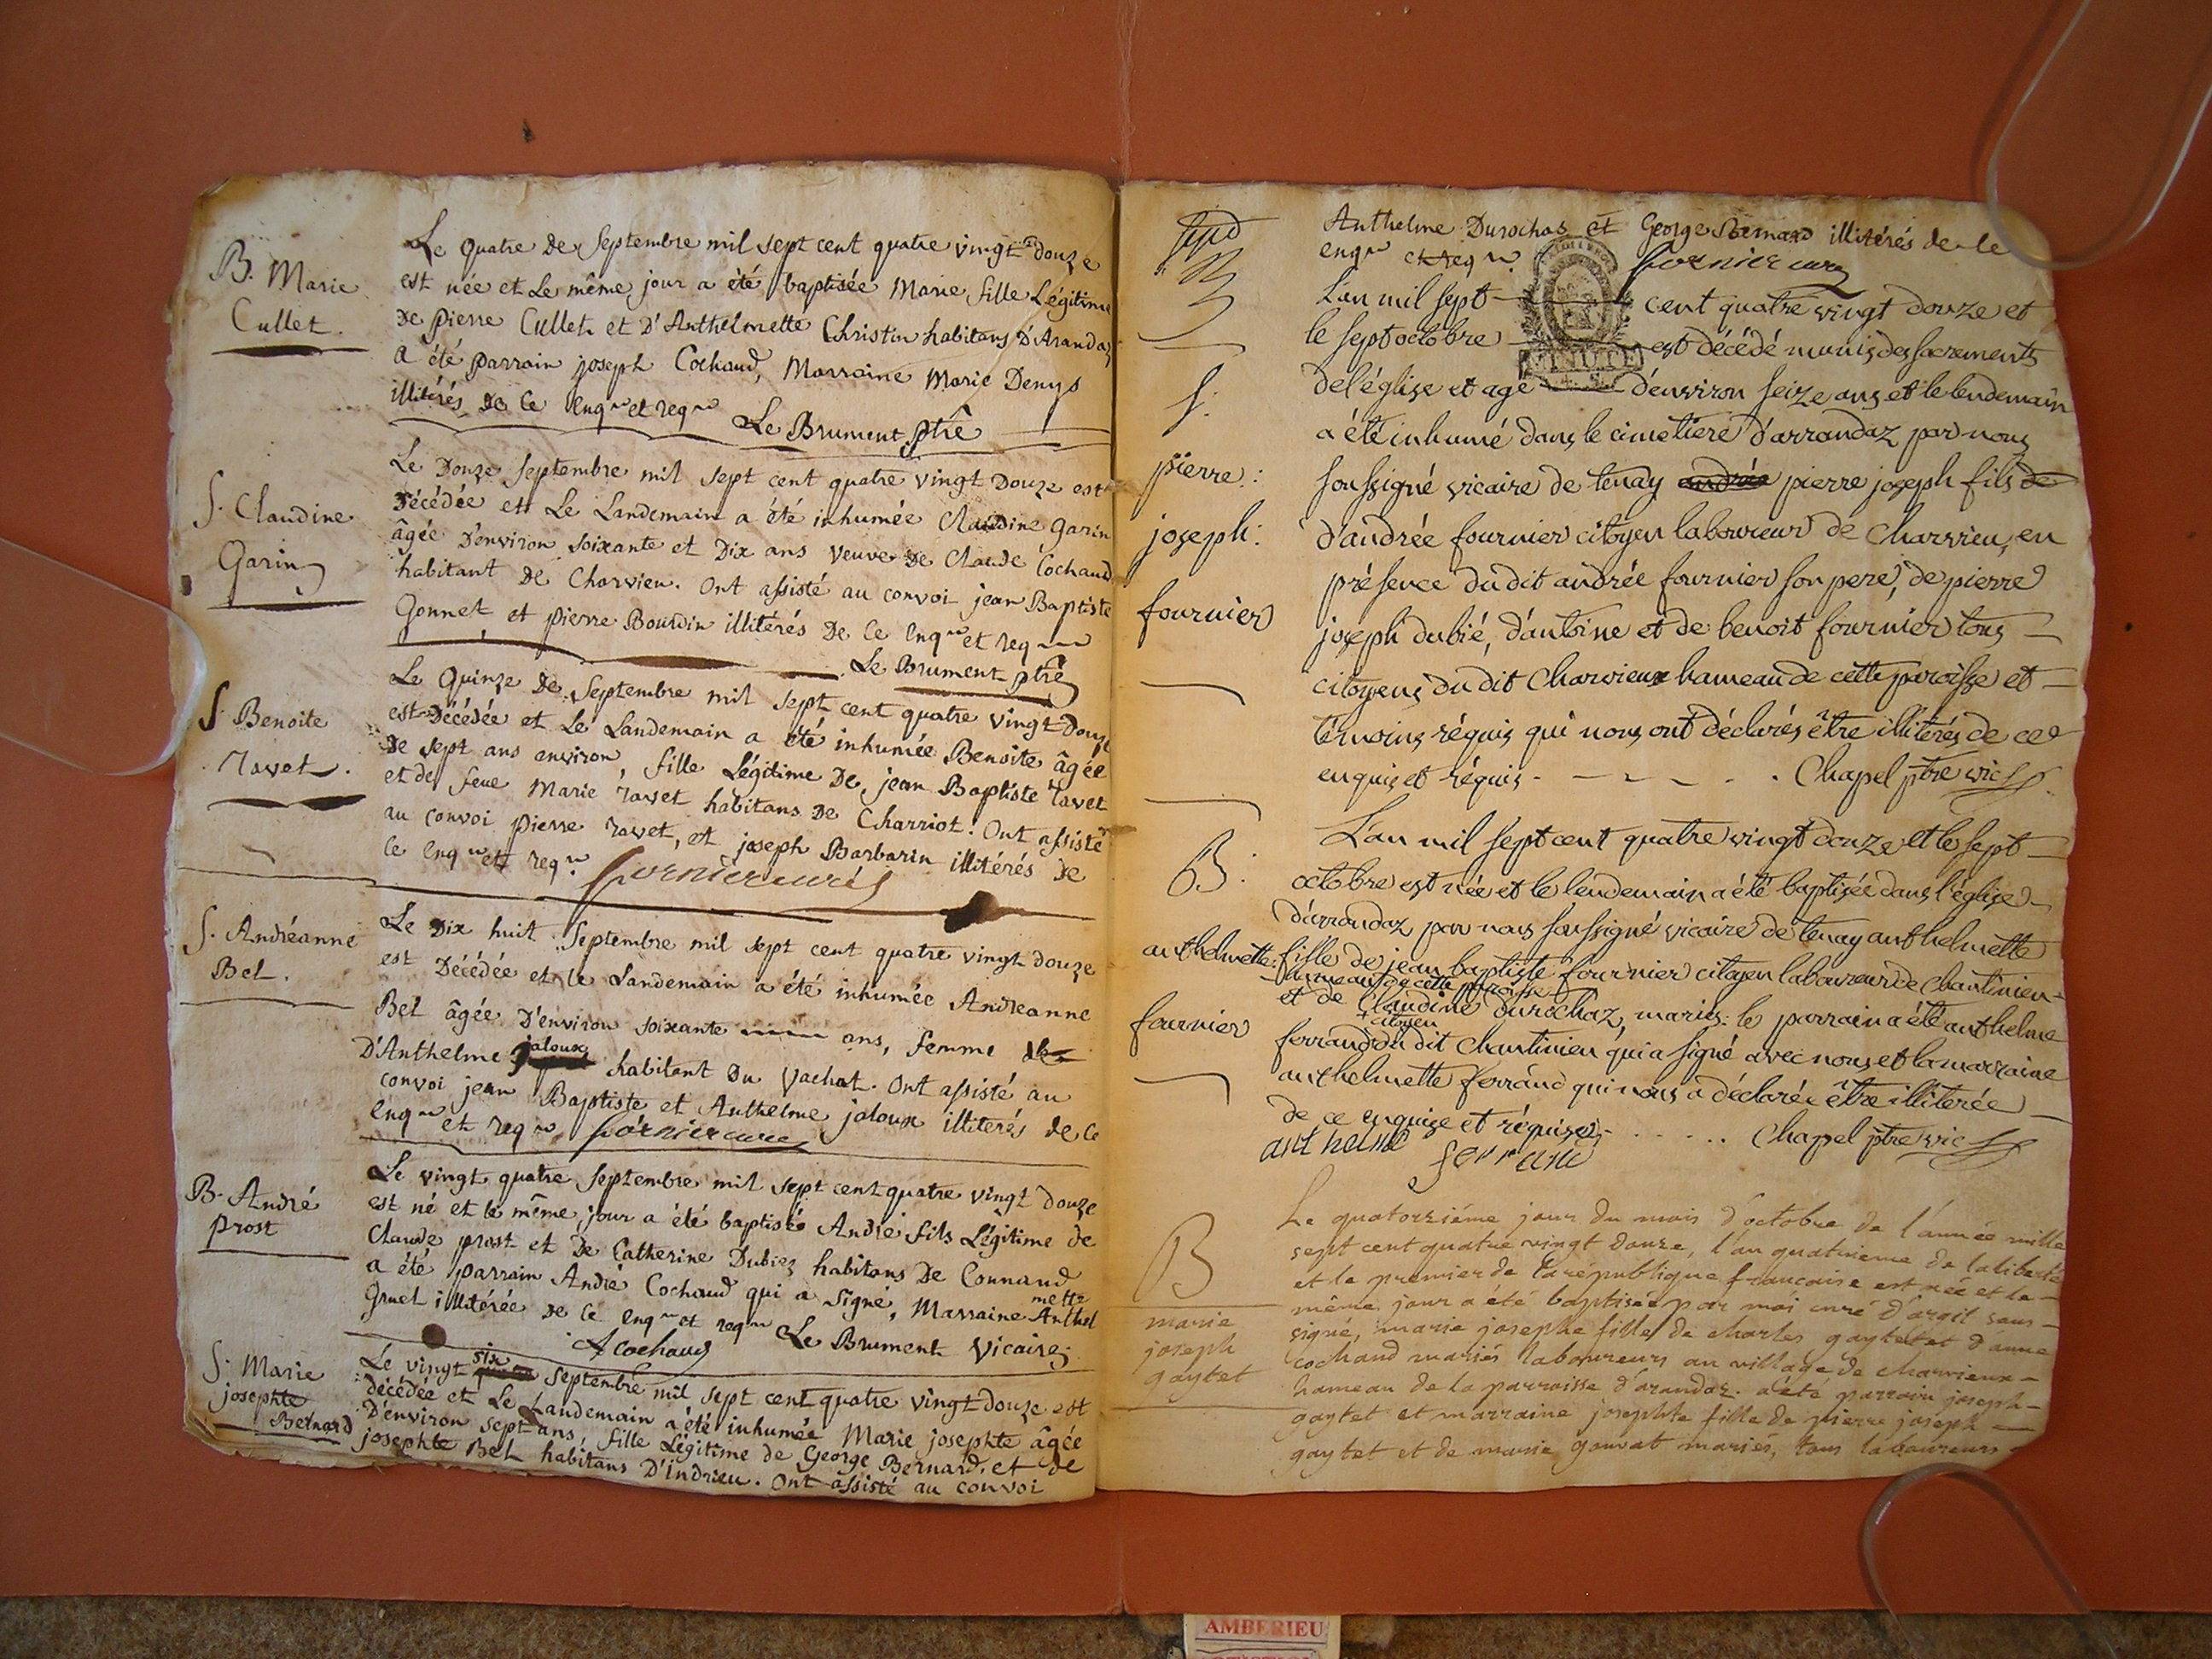 B. Marie
Cullet.
Le quatre de Septembre mil sept cent quatre vingt douze
est née et Le même jour a été baptisée Marie fille Légitime
de pierre Cullet et D'Anthelmette Christin habitans D'Arandas
a été parrain joseph Cochaud, Marraine Marie Denys
illitérés de Ce enq^u et req^u Le Brument ptre
S. Claudine
Garin
Le Douze Septembre mil sept cent quatre vingt Douze est
Décédée et Le Landemain a été inhumée Claudine Garin
âgée D'environ soixante et Dix ans veuve de Claude Cochaud
habitant De Charvieu. Ont assisté au convoi jean Baptiste
Gonnet et pierre Bourdin illitérés De Ce enq^u et req
Le Brument ptre
S. Benoite
ravet.
Le Quinze De Septembre mil sept cent quatre vingt Douze
est Décédée et Le Landemain a été inhumée Benoite âgée
De sept ans environ, fille Légitime De jean Baptiste ravet
et de feue Marie ravet habitans De Charriot. Ont assisté
au convoi pierre ravet, et joseph Barbarin illitérés De
Ce enq^u et req^u fornier curé
S. Andréanne
Bel.
Le Dix huit Septembre mil sept cent quatre vingt douze
est Décédée et le Landemain a été inhumée Andreanne
Bel âgée D'environ soixante ans, femme de
D'Anthelme jaloux habitant Du Vachat. Ont assisté au
convoi jean Baptiste et Anthelme jaloux illiterés de Ce
enq^u et req^u fornier curé
B. André
prost
Le vingt quatre Septembre mil sept cent quatre vingt Douze
est né et le même jour a été baptisé André fils Légitime de
Claude prost et De Catherine Dubiez habitans De Connand
a été parrain André Cochaud qui a Signé, Marraine Anthelmette
Gruel illitérée De Ce enq^u et req^u Le Brument Vicaire
A cochaud
S. Marie
josephte
Bernard
Le vingt six Septembre mil sept cent quatre vingt douze est
décédée et Le Landemain a été inhumée Marie josephte âgée
D'environ sept ans, fille Légitime de George Bernard, et de
josephte Bel habitans D'indrieu. Ont assisté au convoi
Anthelme Durochas et George Bernard illitérés de Ce
enq^u et req^u fornier curé
S:
pierre:
joseph:
fournier
L'an mil sept cent quatre vingt douze et
le sept octobre est décédé munis des sacrements
de l'église et agé d'environ seize ans et le lendemain
a été inhumé dans le cimetiere d'arrandaz par nous
soussigné vicaire de tenay andrée pierre joseph fils de
d'andrée fournier citoyen laboureur de Charvieu, en
présence du dit andrée fournier son pere, de pierre
joseph dubié, d'antoine et de benoit fournier tous
citoyens du dit Charvieux hameau de cette paroisse et
témoins réquis qui nous ont déclarés être illitérés de ce
enquis et réquis. Chapel ptre vic
B:
anthelmette:
fournier
L'an mil sept cent quatre vingt douze et le sept
octobre est née et le lendemain a été baptisée dans l'église
d'arrandaz par nous soussigné vicaire de tenay anthelmette
fille de jean baptiste fournier citoyen laboureur de Chantinieu
hameau de cette paroisse
et de Claudine durochaz, mariés: le parrain a été anthelme
citoyen
ferrand du dit Chantinieu qui a signé avec nous et la marraine
anthelmette ferrand qui nous a déclarée être illiterée
de ce enquise et réquise. Chapel ptre vic
anthelme ferrand
B
marie
joseph
gaytet
Le quatorziéme jour du mois d'octobre de l'année mille
sept cent quatre vingt douze, l'an quatrieme de la liberté
et le premier de la république francaise est née et le
même jour a été baptisée par moi curé d'argit sous-
signé, marie josephe fille de charles gaytet et d'anne
cochand mariés laboureurs au village de charvieux
hameau de la parroisse d'arandaz. a été parrain joseph
gaytet et marraine josephte fille de pierre joseph
gaytet et de marie gonvat mariés, tous laboureurs
AMBERIEU